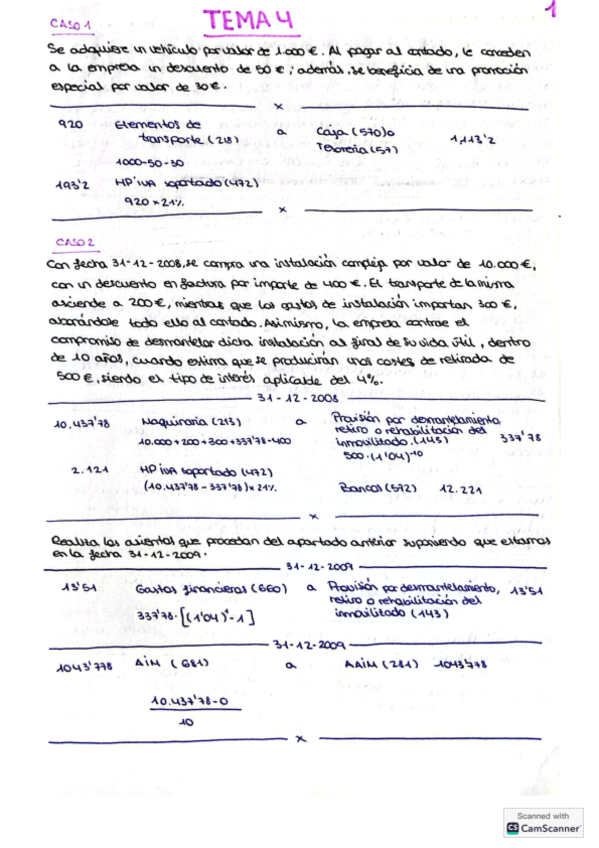 1
TEMA 4
CASO 1
Se adquiere un vehículo por valor de 1.000 €. Al pagar al contado, le conceden
a la empresa un descuento de 50 €; además, se beneficia de una promoción
especial por valor de 30 €.
x
920 Elementos de a Caja (570) o 1,113'2
transporte (218) Tesorería (57)
1000-50-30
193'2 HP IVA soportado (472)
920 x 21%
x
CASO 2
Con fecha 31-12-2008, se compra una instalación compleja por valor de 10.000 €,
con un descuento en factura por importe de 400 €. El transporte de la misma
asciende a 200 €, mientras que los gastos de instalación importan 300 €,
abonándole todo ello al contado. Asimismo, la empresa contrae el
compromiso de desmantelar dicta instalación al final de su vida útil, dentro
de 10 años, cuando estima que se producirán unos costes de retirada de
500 €, siendo el tipo de interés aplicable del 4%.
31-12-2008
10.437'78 Maquinaria (213) a Provisión por desmantelamiento
retiro o rehabilitación del 337'78
10.000+200+300+337'78-400 inmovilizado. (143)
500·(1'04)-10
2.121 HP IVA soportado (472)
(10.437'78 - 337'78) x 21% Bancos (572) 12.221
x
Realiza los asientos que procedan del apartado anterior suponiendo que estamos
en la fecha 31-12-2009.
31-12-2009
13'51 Gastos financieros (660) a Provisión por desmantelamiento, 13'51
retiro o rehabilitación del
337'78·[(1'04)¹-1] inmovilizado (143)
31-12-2009
1043'778 AIM (681) a AAIM (281) 1043'778
10.437'78-0
10
x
Scanned with
CS CamScanner